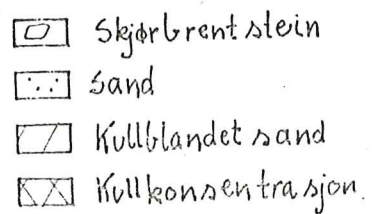 Skjørbrent stein
Sand
Kullblandet sand
Kullkonsentrasjon.